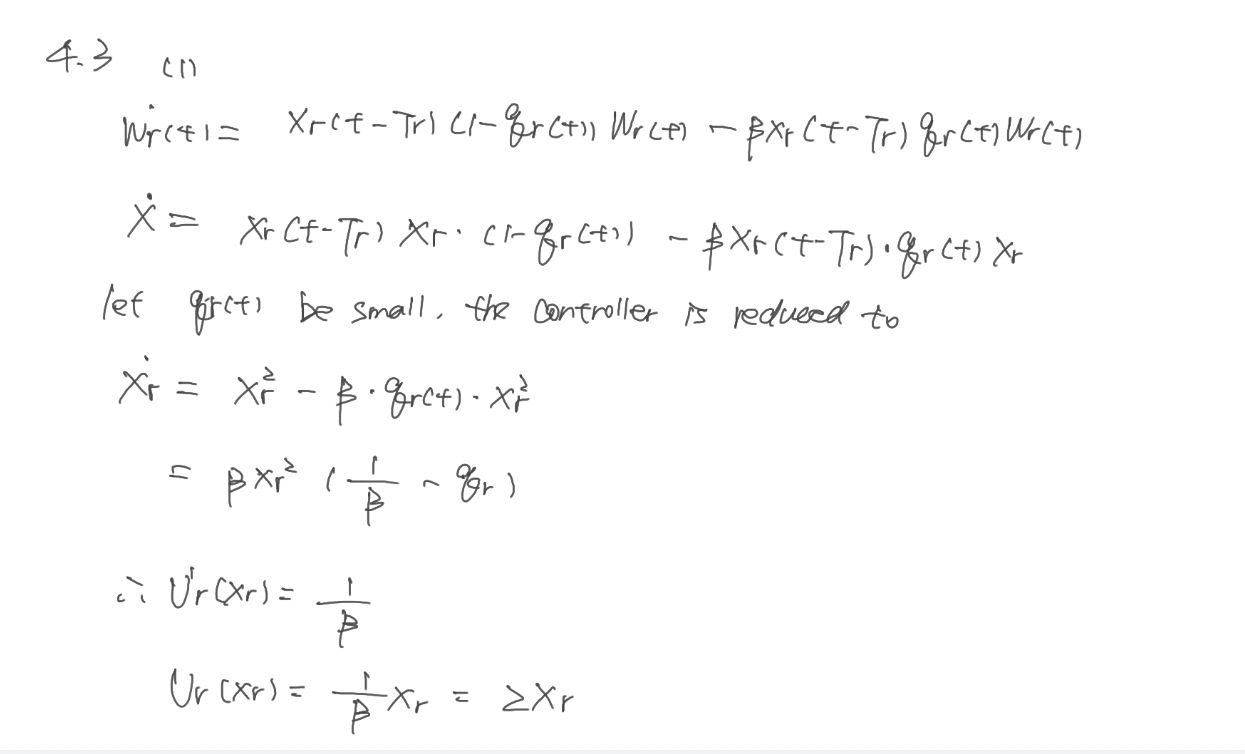 4.3 (1)
Ẇr(t) = Xr(t-Tr) (1-qr(t)) Wr(t) - βXr(t-Tr) qr(t) Wr(t)
Ẋ = Xr(t-Tr) Xr · (1-qr(t)) - βXr(t-Tr) · qr(t) Xr
let qr(t) be small, the controller is reduced to
Ẋr = Xr² - β · qr(t) · Xr²
= βXr² (1/β - qr)
∴ U'r(Xr) = 1/β
Ur(Xr) = 1/β Xr = 2Xr